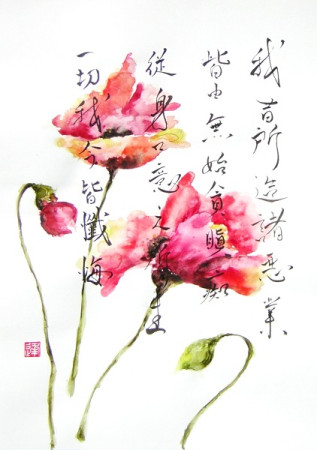 我昔所造諸惡業
皆由無始貪瞋癡
從身口意之所生
一切我今皆懺悔